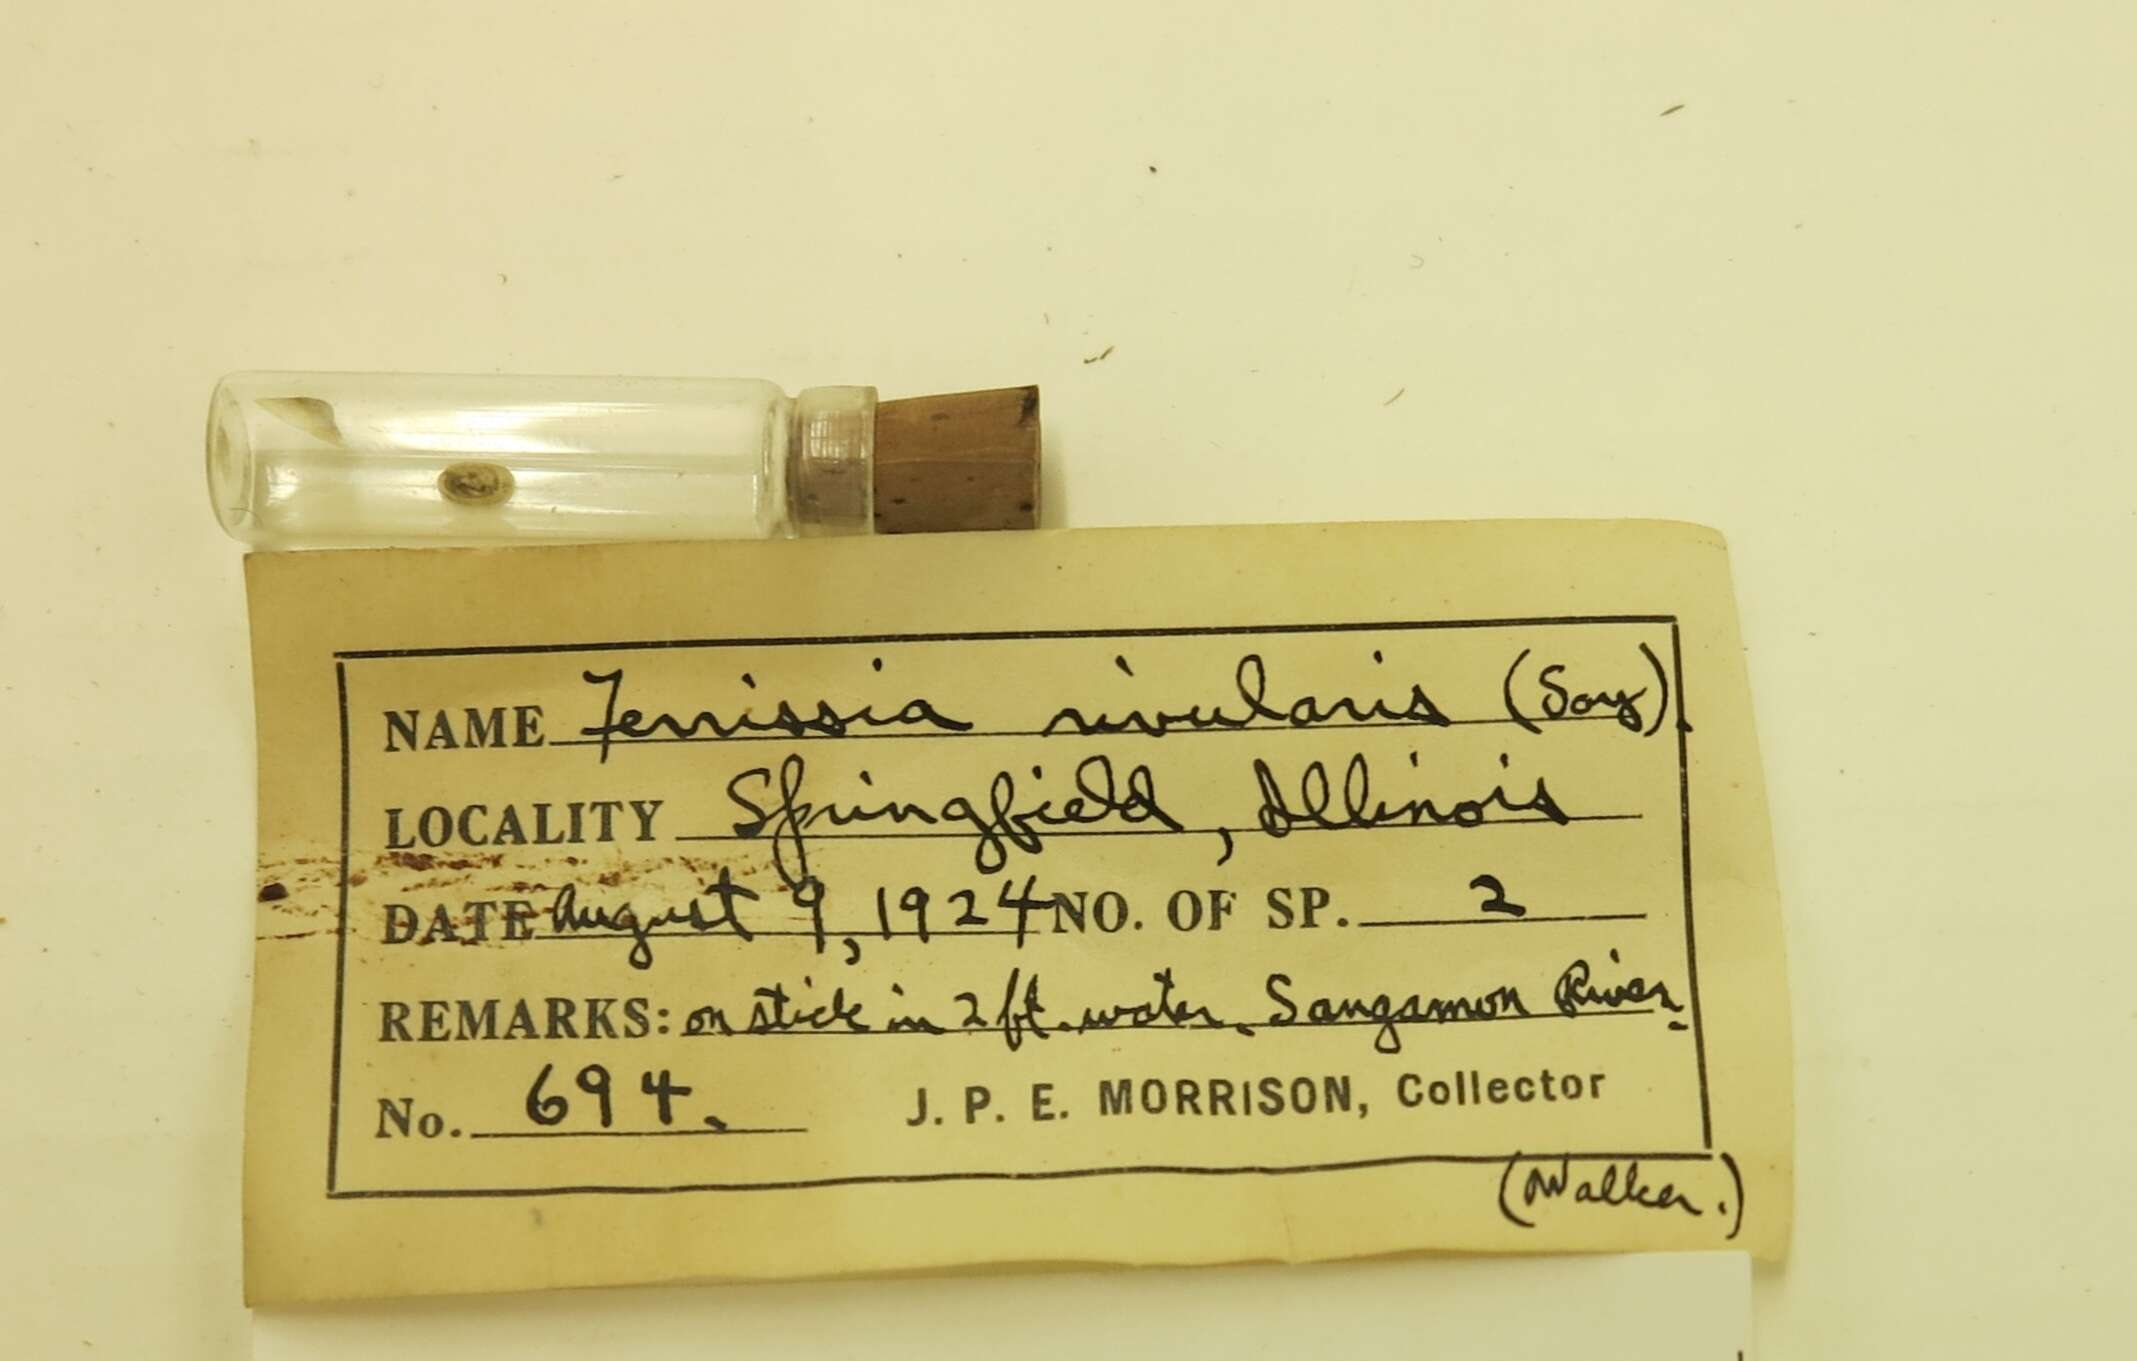 NAME Ferrissia rivularis (Say).
LOCALITY Springfield, Illinois
DATE August 9, 1924 NO. OF SP. 2
REMARKS: on stick in 2 ft. water, Sangamon River.
No. 694. J. P. E. MORRISON, Collector
(Walker.)